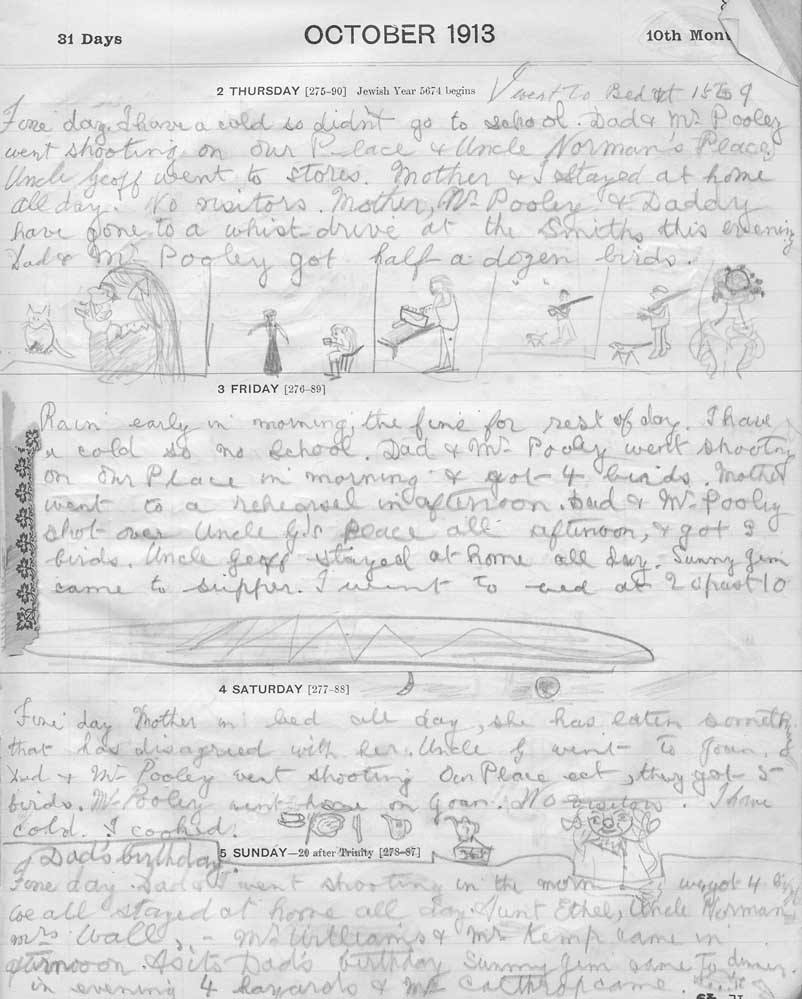 31 Days OCTOBER 1913 10th Mont
2 THURSDAY [275-90] Jewish Year 5674 begins I went to Bed at 15 to 9
Fine day. I have a cold so didn't go to school. Dad & Mr Pooley
went shooting on our Place & Uncle Norman's Place,
Uncle Geoff went to stores. Mother & I stayed at home
all day. No visitors. Mother, Mr Pooley & Daddy
have gone to a whist drive at the Smiths this evening
Dad & Mr Pooley got half a dozen birds.
3 FRIDAY [276-89]
Rain early in morning, the fine for rest of day. I have
a cold so no school. Dad & Mr Pooley went shooting
on our Place in morning & got 4 birds. Mother
went to a rehearsel in afternoon. Dad & Mr Pooley
shot over Uncle G's place all afternoon, & got 3
birds. Uncle Geoff stayed at home all day. Sunny Jim
came to supper. I went to bed at 20 past 10
4 SATURDAY [277-88]
Fine day Mother in bed all day, she has eaten someth
that has disagried with her. Uncle G went to Goan.
Dad & Mr Pooley went shooting Our Place ect, they got 5
birds. Mr Pooley went on Goan. No visitors. I have
cold. I cooked.
Dad's birthday 5 SUNDAY—20 after Trinity [278-87]
Fine day. Dad & went shooting in the morn we got 4
we all stayed at home all day. Aunt Ethel, Uncle Norman
mrs Wall, Mr Williams & Mr Kemp came in
afternoon. As its Dad's birthday Sunny Jim came to dinner.
in evening 4 hayards & Mr Calthrop came.